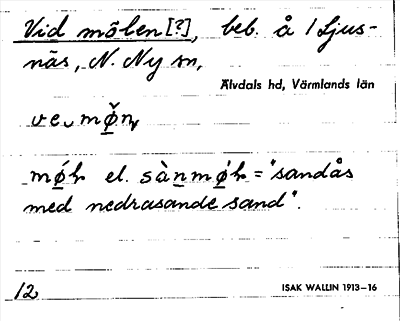 Vid mölen [?], beb. å 1 Ljus-
näs, N. Ny sn,
Älvdals hd, Värmlands län
"sandås
med nedrasande sand".
12
ISAK WALLIN 1913–16